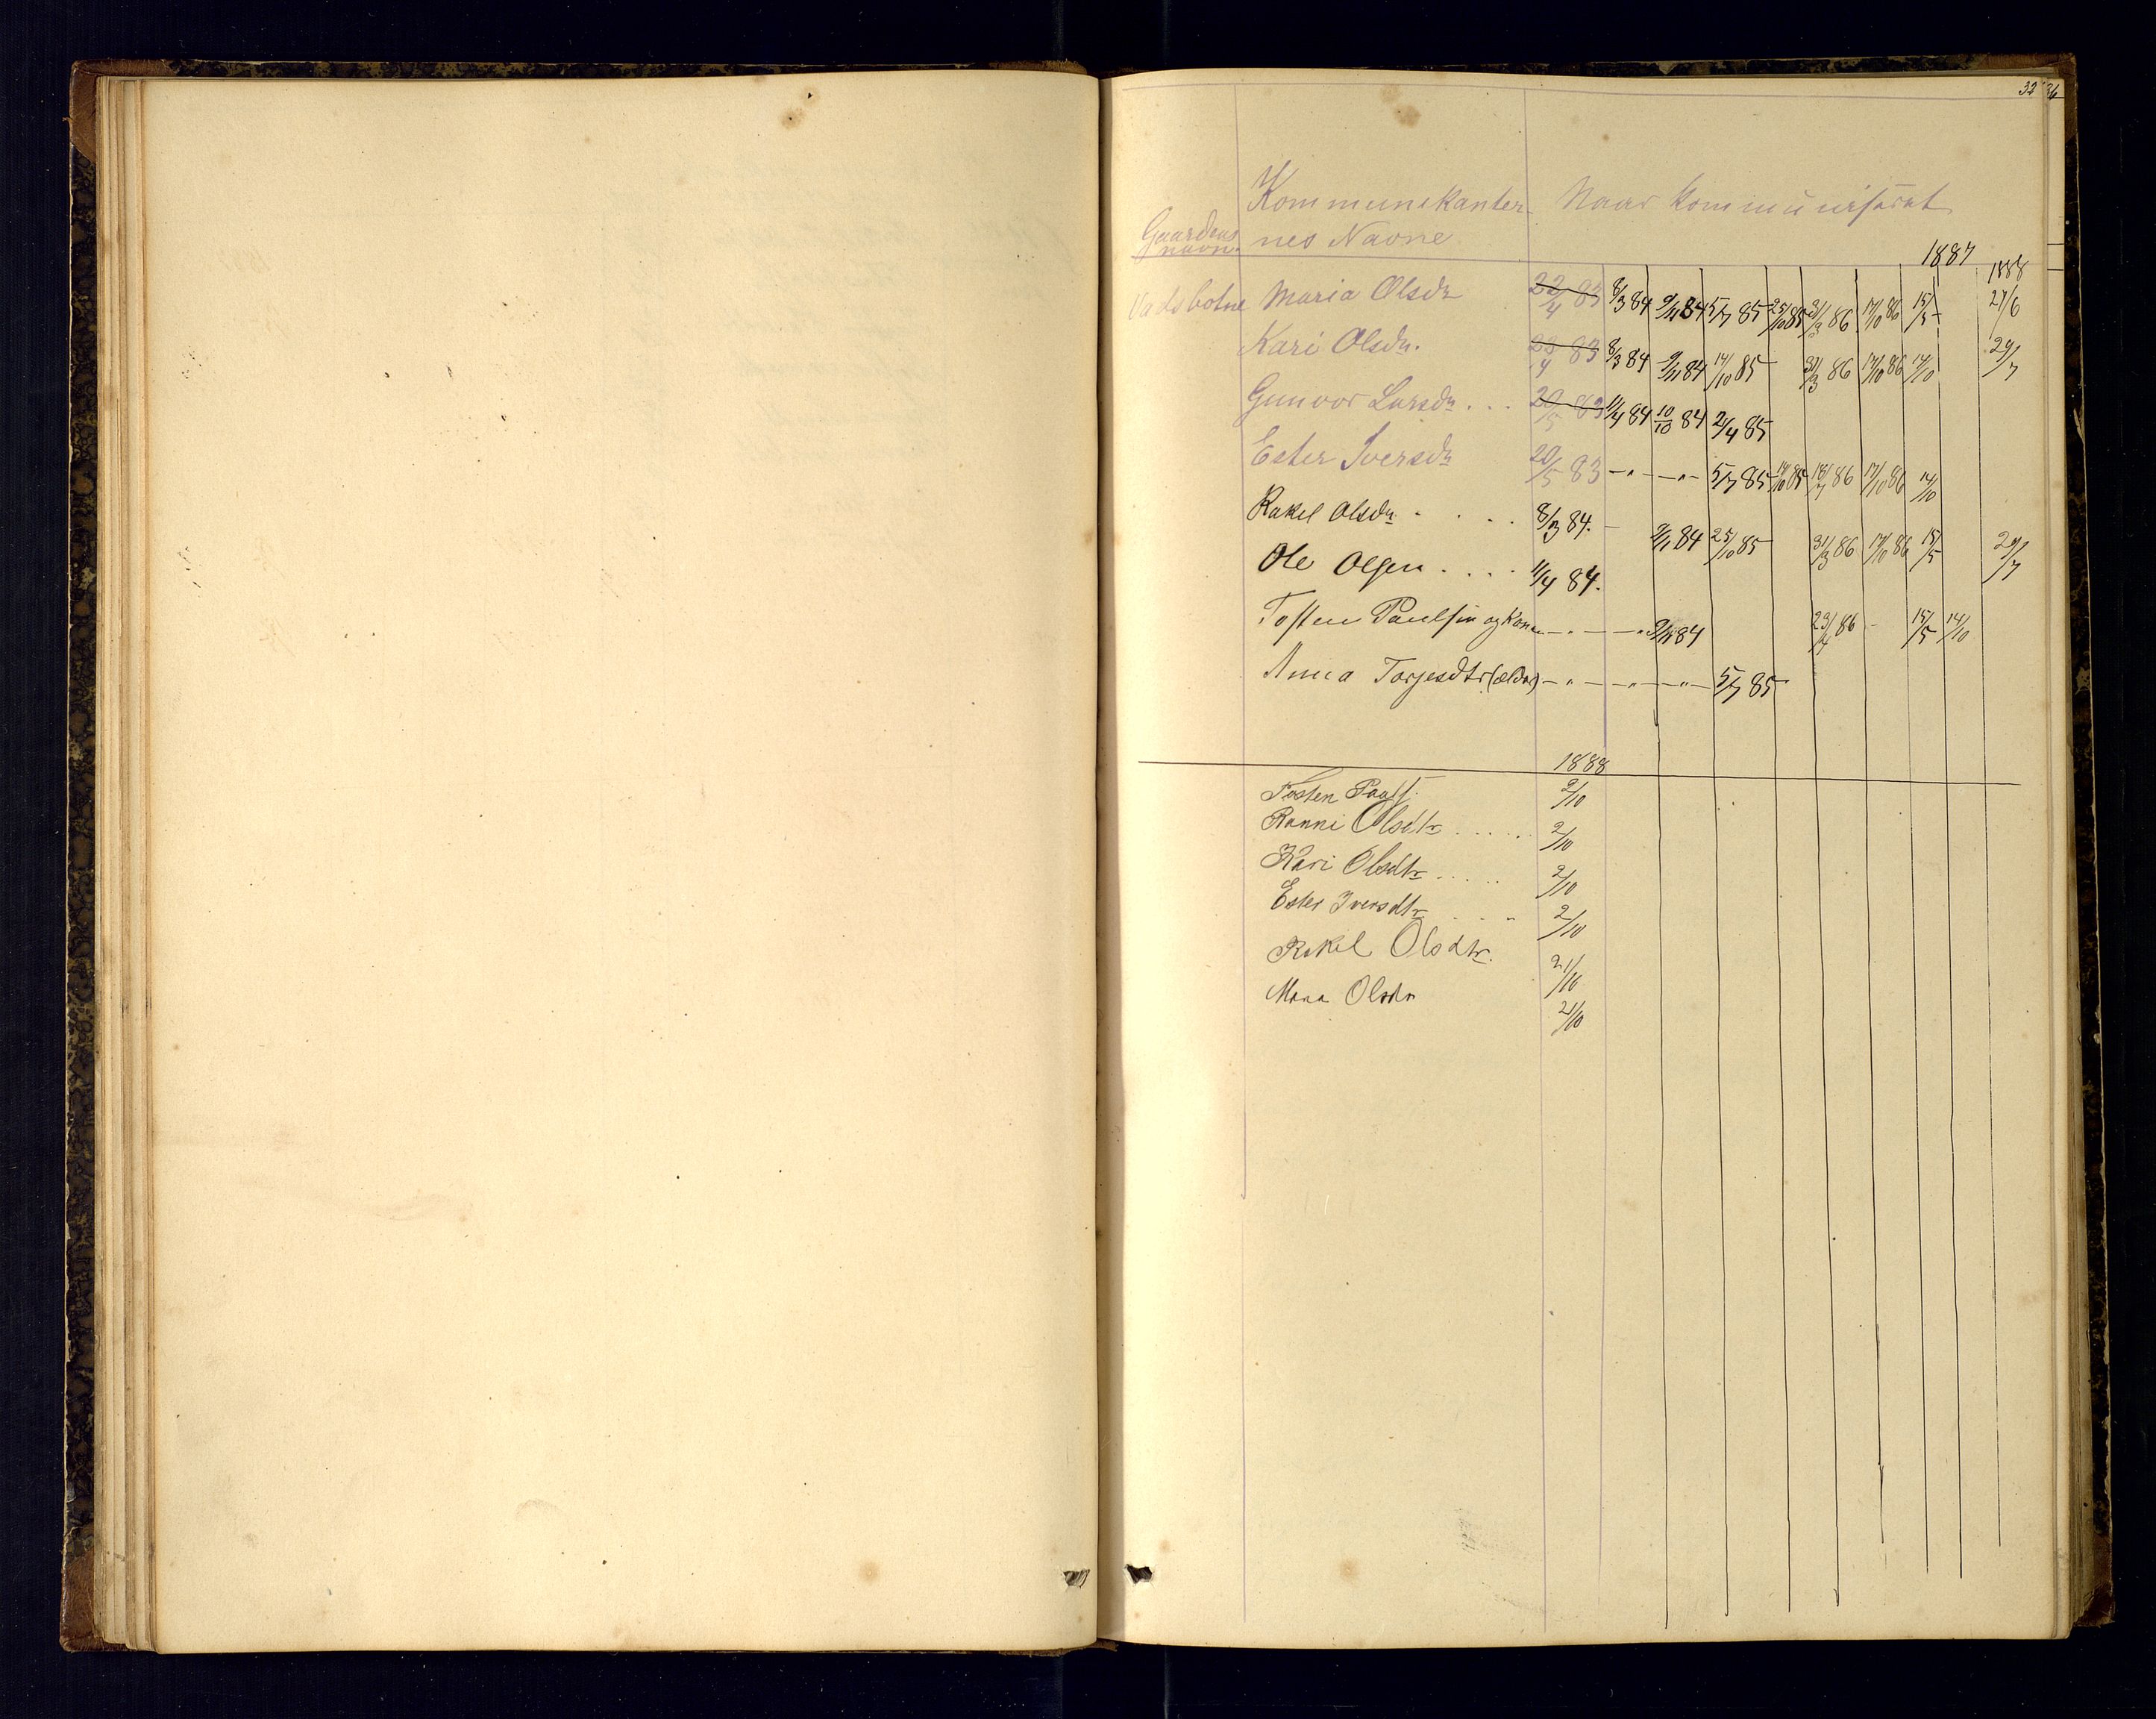 32 36
Kommunikanter- Naar kommunisérat
Gaardens
navn. nes Navne
1887
1888
Vadsbotne Maria Olsdr 22/4 83 8/3 84 9/11 84 5/7 85 25/10 85 31/3 86 17/10 86 15/5 27/6
Kari Olsdr. 22/4 83 8/3 84 9/11 84 17/10 85 31/3 86 17/10 86 14/10 29/7
Gunvor Larsdr . . . 20/5 83 11/4 84 10/10 84 2/4 85
Ester Iversdr 20/5 83 - " - - " - 5/7 85 17/10 85 18/7 86 17/10 86 14/10
Rakel Olsdr . . . . 8/3 84. - 9/11 84 25/10 85 31/3 86 17/10 86 15/5 29/7
Ole Olsen . . . . 11/4 84.
Tosten Paulsen og Kone - " - - " 9/11 84 23/4 86 - 15/5 14/10
Anna Torjesdtr (ældre) - " - - " - - " - 5/7 85
1888
Tosten Pauls. 2/10
Ranni Olsdtr . . . . . . 2/10
Kari Olsdtr . . . . . 2/10
Ester Iversdtr . . . 2/10
Rakel Olsdtr. 21/10
Maria Olsdr 21/10